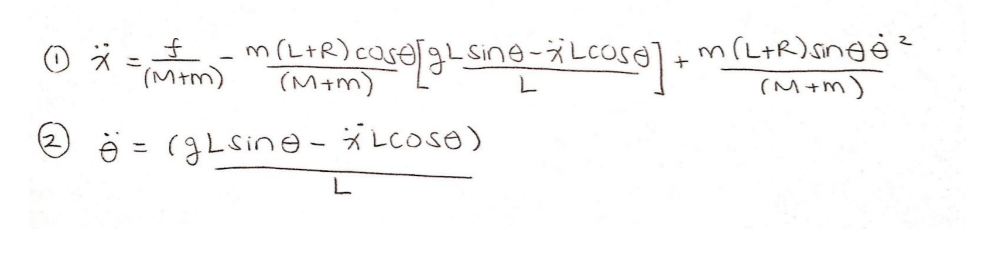 ① ẍ = f/(M+m) - m(L+R)cosθ/(M+m) [gLsinθ-ẍLcosθ/L] + m(L+R)sinθθ̇²/(M+m)
② θ̈ = (gLsinθ - ẍLcosθ)/L